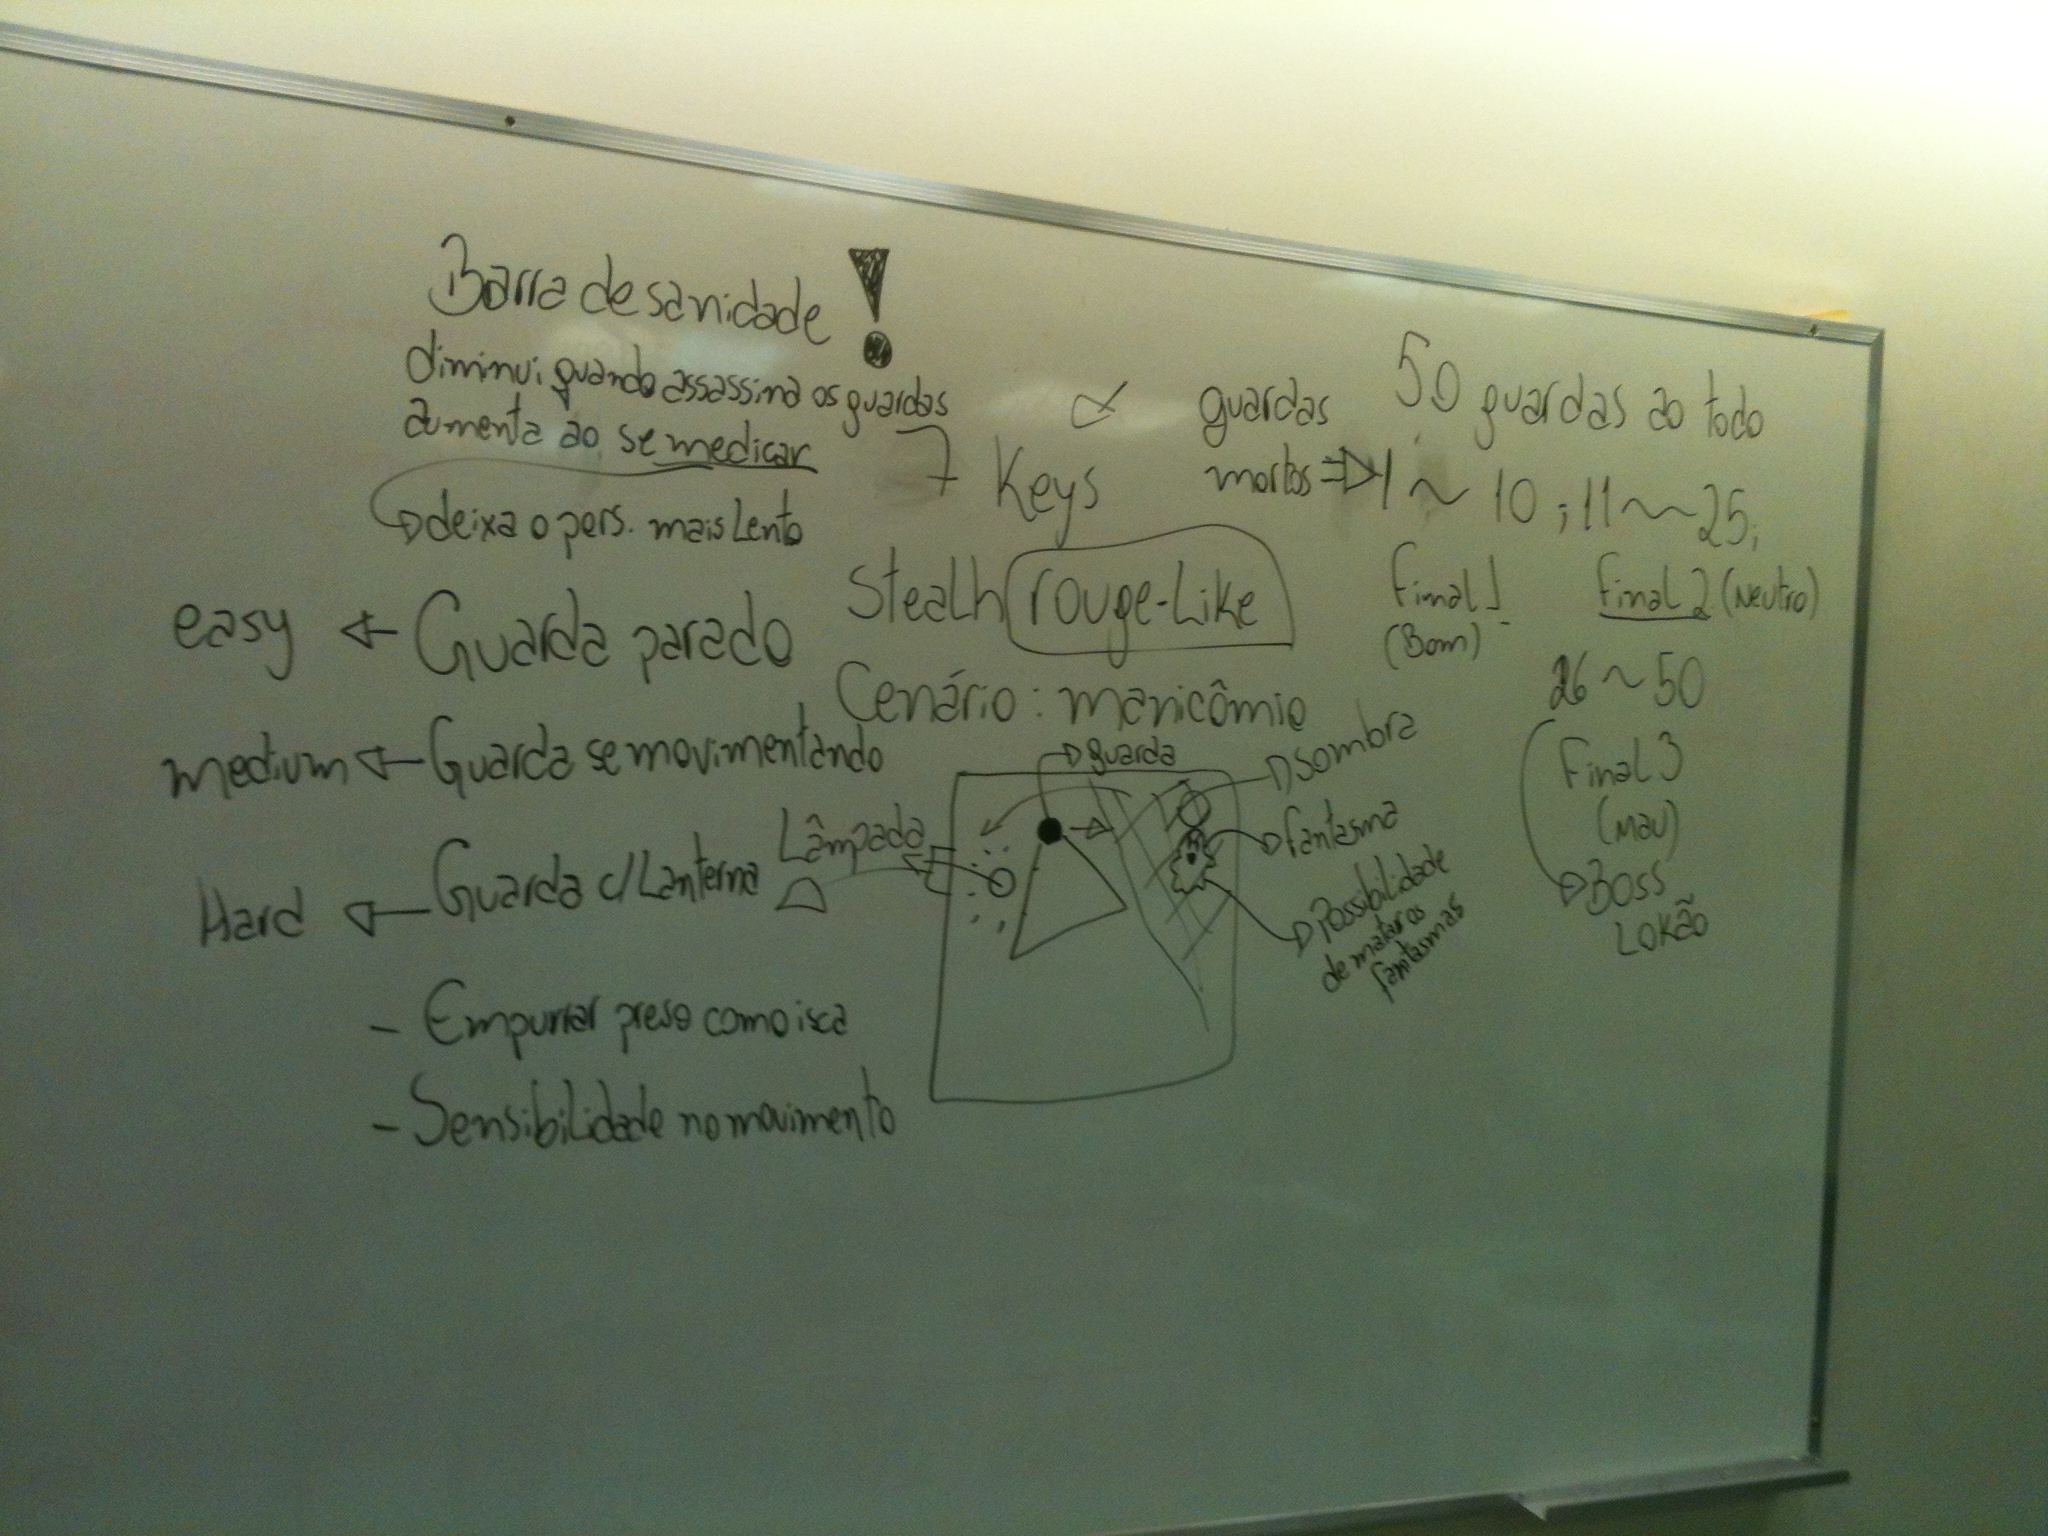 Barra de sanidade !
diminui quando assassina os guardas
aumenta ao se medicar
deixa o pers. mais lento
easy ← Guarda parado
medium ← Guarda se movimentando
Hard ← Guarda c/ Lanterna
- Empurrar preso como isca
- Sensibilidade no movimento
7 Keys
Stealh rouge-like
Cenário: manicômio
guarda
Lâmpada
sombra
fantasma
Possibilidade
de matar os
fantasmas
50 guardas ao todo
guardas
mortos ⇒ 1 ~ 10 ; 11 ~ 25;
Final 1
(Bom)
Final 2 (Neutro)
26 ~ 50
Final 3
(Mau)
Boss
LOKão